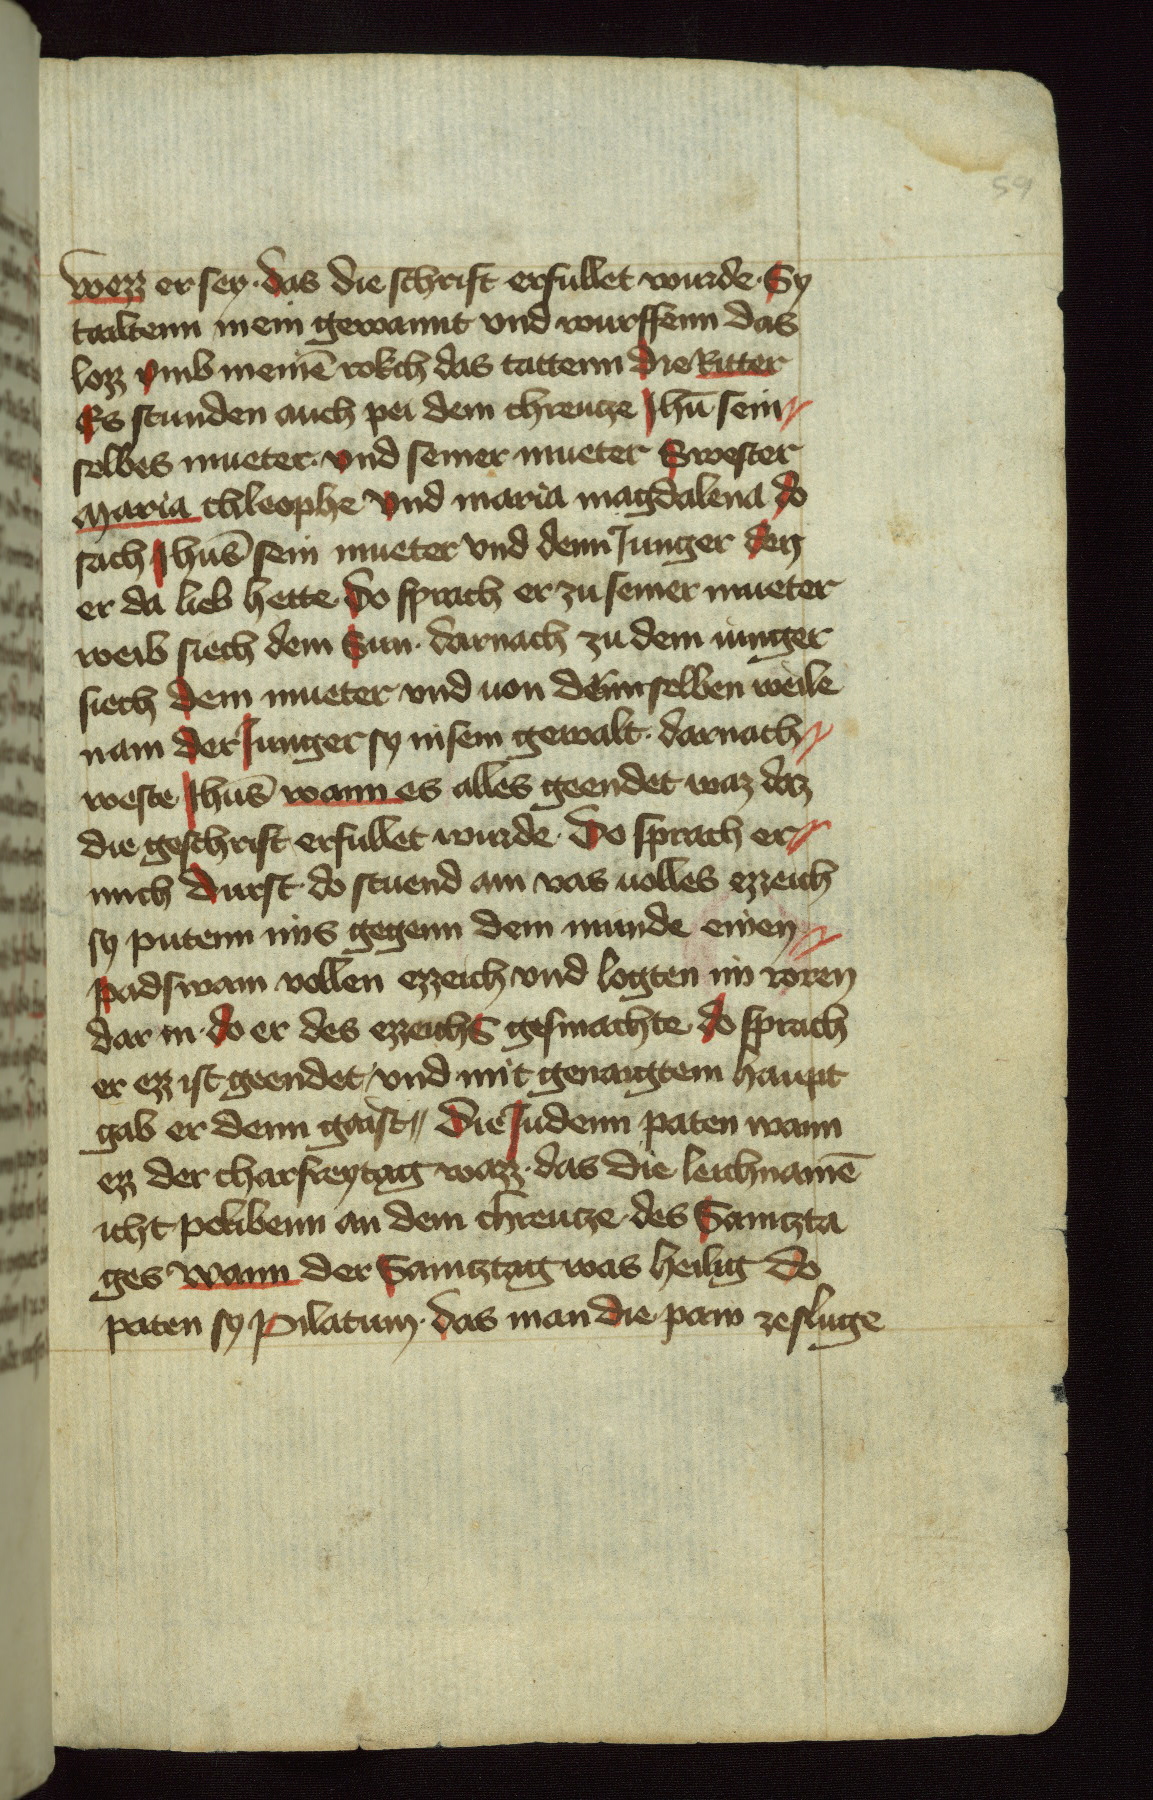 59
wezz er sey · das die schrift erfullet wurde · Sy
tailtenn mein gewannt vnd wurffenn das
lozz vmb meinē rokch das tattenn die Ritter
Es stunden auch pei dem chreucze Jhū sein //
selbes mueter · vnd seiner mueter Swester
Maria chleophe vnd maria magdalena do
sach Jhūs sein mueter vnd denn Junger den
er da lieb hette · Do sprach er zu seiner mueter
weib siech dein Sun · darnach zu dem iunger
siech dein mueter vnd uon der selben weile
nam der Junger sy in sein gewalt · darnach //
weste Jhūs wann es alles geendet waz daz
die geschrift erfullet wurde · Do sprach er //
mich durst · do stuend ain vas uolles ezzeich
sy putenn ims gegenn dem munde einen //
padswam vollen ezzeich vnd logten im roren
dar in · do er des ezzeichs gesmachte do sprach
er ezz ist geendet / vnd mit genaigtem haupt
gab er denn gaist // Die Judenn paten wann
ezz der charfreytag wazz · das die leichnamē
icht pelibenn an dem chreucze · des Samczta
ges wann der Samcztag was heilig Do
paten sy Pilatum · das man die pain zesluge